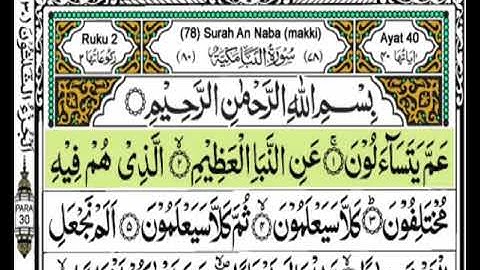 Ruku 2
رکوعاتها ٢
(78) Surah An Naba (makki)
(٨٠) سُوْرَةُ النَّبَاِ مَكِّيَّةٌ (٧٨)
Ayat 40
اٰیاتها ٤٠
بِسْمِ اللهِ الرَّحْمٰنِ الرَّحِيْمِ
عَمَّ يَتَسَآءَلُوْنَ ۝١ عَنِ النَّبَاِ الْعَظِيْمِ ۝٢ الَّذِيْ هُمْ فِيْهِ
مُخْتَلِفُوْنَ ۝٣ كَلَّا سَيَعْلَمُوْنَ ۝٤ ثُمَّ كَلَّا سَيَعْلَمُوْنَ ۝٥ اَلَمْ نَجْعَلِ
PARA
30